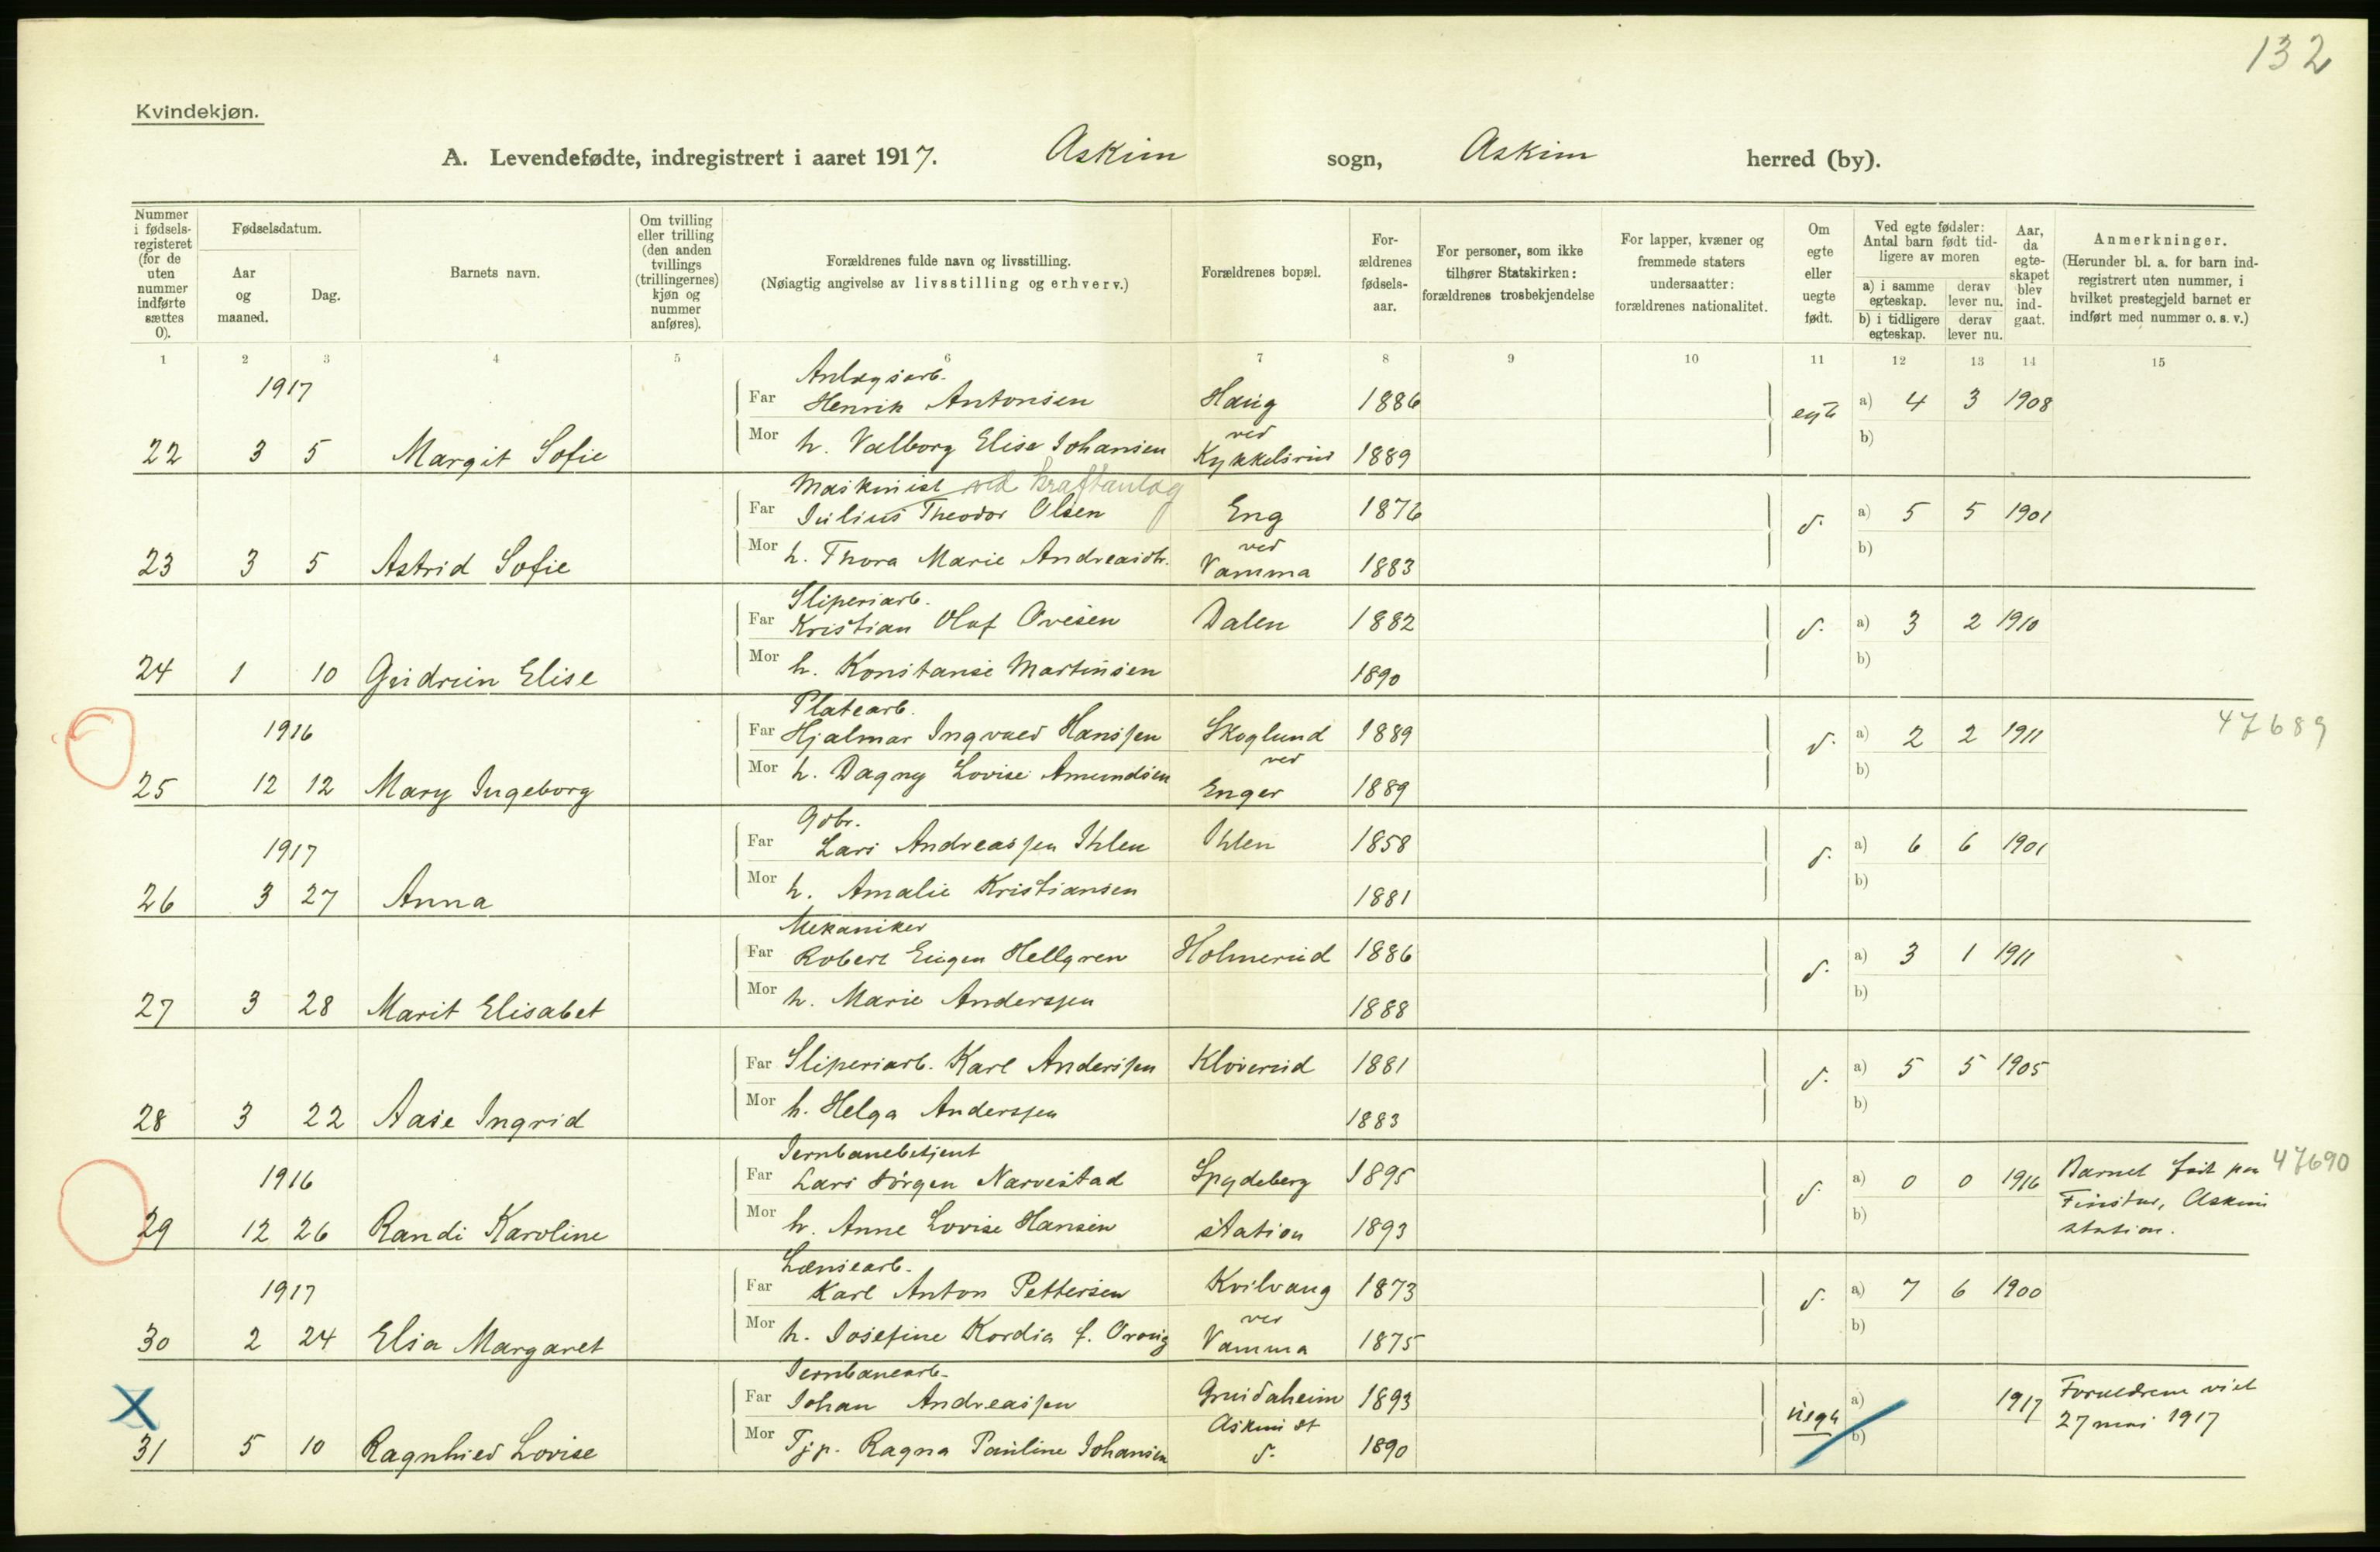 132
Kvindekjøn.
A. Levendefødte, indregistrert i aaret 1917. Askim sogn, Askim herred (by).
Nummer i fødsels-registeret (for de uten nummer indførte sættes 0).
Fødselsdatum.
Aar og maaned.
Dag.
Barnets navn.
Om tvilling eller trilling (den anden tvillings (trillingernes) kjøn og nummer anføres).
Forældrenes fulde navn og livsstilling.
(Nøiagtig angivelse av livsstilling og erhverv.)
Forældrenes bopæl.
For-ældrenes fødsels-aar.
For personer, som ikke tilhører Statskirken: forældrenes trosbekjendelse
For lapper, kvæner og fremmede staters undersaatter: forældrenes nationalitet.
Om egte eller uegte født.
Ved egte fødsler: Antal barn født tid-ligere av moren
a) i samme egteskap. derav lever nu.
b) i tidligere egteskap. derav lever nu.
Aar, da egte-skapet blev ind-gaat.
Anmerkninger.
(Herunder bl. a. for barn ind-registrert uten nummer, i hvilket prestegjeld barnet er indført med nummer o. s. v.)
1 2 3 4 5 6 7 8 9 10 11 12 13 14 15
1917 Anlægsarb.
Far Henrik Antonsen Haug 1886 egte a) 4 3 1908
22 3 5 Margit Sofie Mor h. Valborg Elise Johansen ved Kykkelsrud 1889 b)
Maskinist ved kraftanlæg
Far Julius Theodor Olsen Eng 1876 d. a) 5 5 1901
23 3 5 Astrid Sofie Mor h. Thora Marie Andreasdtr. ved Vamma 1883 b)
Sliperiarb.
Far Kristian Olaf Ovesen Dalen 1882 d. a) 3 2 1910
24 1 10 Gudrun Elise Mor h. Konstanse Martinsen 1890 b)
1916 Platearb.
Far Hjalmar Ingvald Hanssen Skoglund 1889 d. a) 2 2 1911 47689
25 12 12 Mary Ingeborg Mor h. Dagny Lovise Amundsen ved Enger 1889 b)
1917 Gdbr.
Far Lars Andreassen Ihlen Ihlen 1858 d. a) 6 6 1901
26 3 27 Anna Mor h. Amalie Kristiansen 1881 b)
Mekaniker
Far Robert Eugen Hellgren Holmerud 1886 d. a) 3 1 1911
27 3 28 Marit Elisabet Mor h. Marie Anderssen 1888 b)
Far Sliperiarb. Karl Anderssen Kløverud 1881 d. a) 5 5 1905
28 3 22 Aase Ingrid Mor h. Helga Anderssen 1883 b)
1916 Jernbanebetjent
Far Lars Jørgen Narvestad Spydeberg 1895 d. a) 0 0 1916 Barnet født paa 47690
29 12 26 Randi Karoline Mor h. Anne Lovise Hansen station 1893 b) Finstur, Askim station.
1917 Lænsearb.
Far Karl Anton Pettersen Kvilvang 1873 d. a) 7 6 1900
30 2 24 Elsa Margaret Mor h. Josefine Kordia f. ved Vamma 1875 b)
Jernbanearb.
Far Johan Andreassen Askim st 1893 uegte a) 1917 Foreldrene viet
31 5 10 Ragnhild Lovise Mor Tjp. Ragna Pauline Johansen d. 1890 b) 27 mai 1917